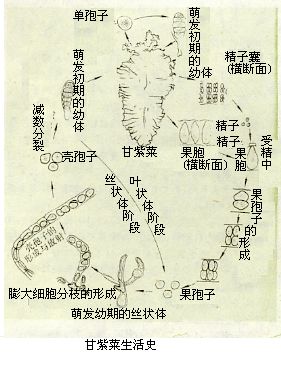 单孢子
萌发初期的幼体
精子囊
(横断面)
萌发初期的幼体
精子
精子
受精中
减数分裂
甘紫菜
果胞
(横断面)
果胞
壳孢子
叶状体阶段
丝状体阶段
果孢子的形成
壳孢子的形成与放射
膨大细胞分枝的形成
果孢子
萌发幼期的丝状体
甘紫菜生活史